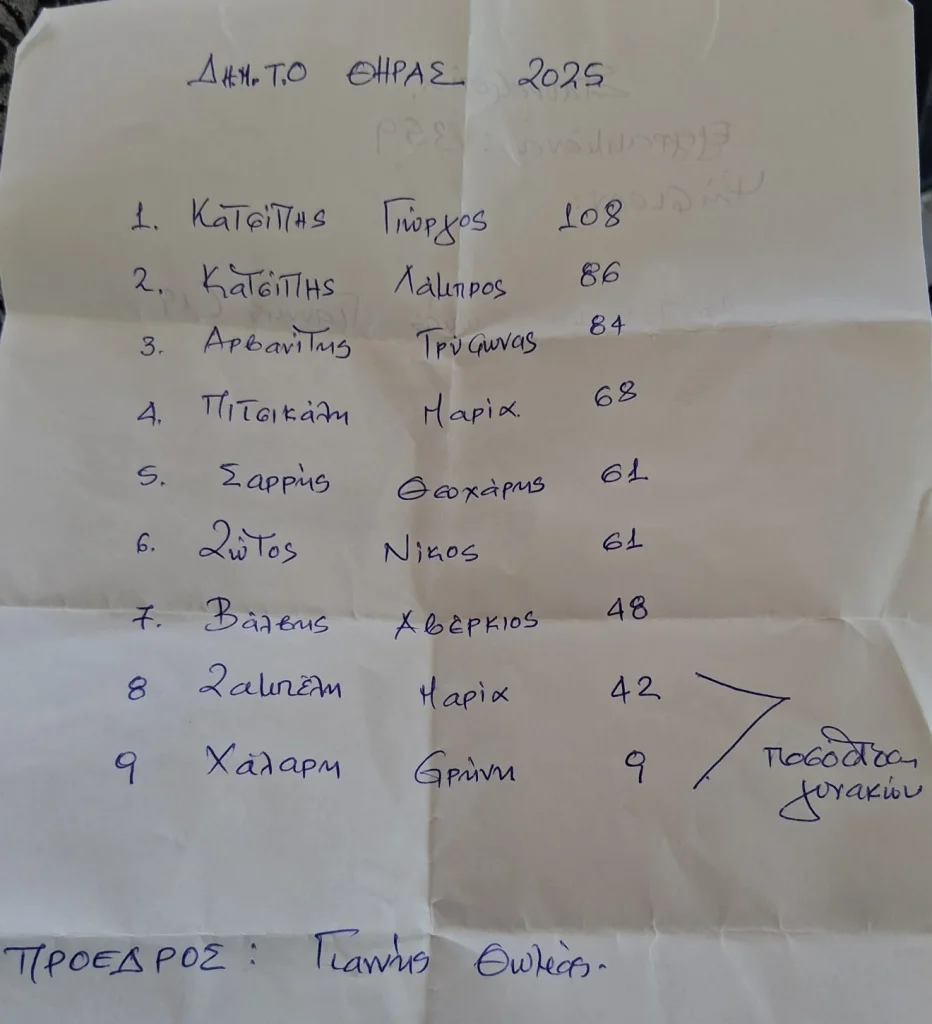 ΔΗ.Μ.Τ.Ο ΘΗΡΑΣ 2025
1. Κατσίπης Γιώργος 108
2. Κατσίπης Λάμπρος 86
3. Αρβανίτης Τρύφωνας 84
4. Πιτσικάλη Μαρία 68
5. Σαρρής Θεοχάρης 61
6. Ζώτος Νίκος 61
7. Βάλβης Αβέρκιος 48
8 Ζαμπέλη Μαρία 42
9 Χάλαρη Ειρήνη 9
ποσόστωση
γυνακιών
ΠΡΟΕΔΡΟΣ: Γιαννής Θωμάς.